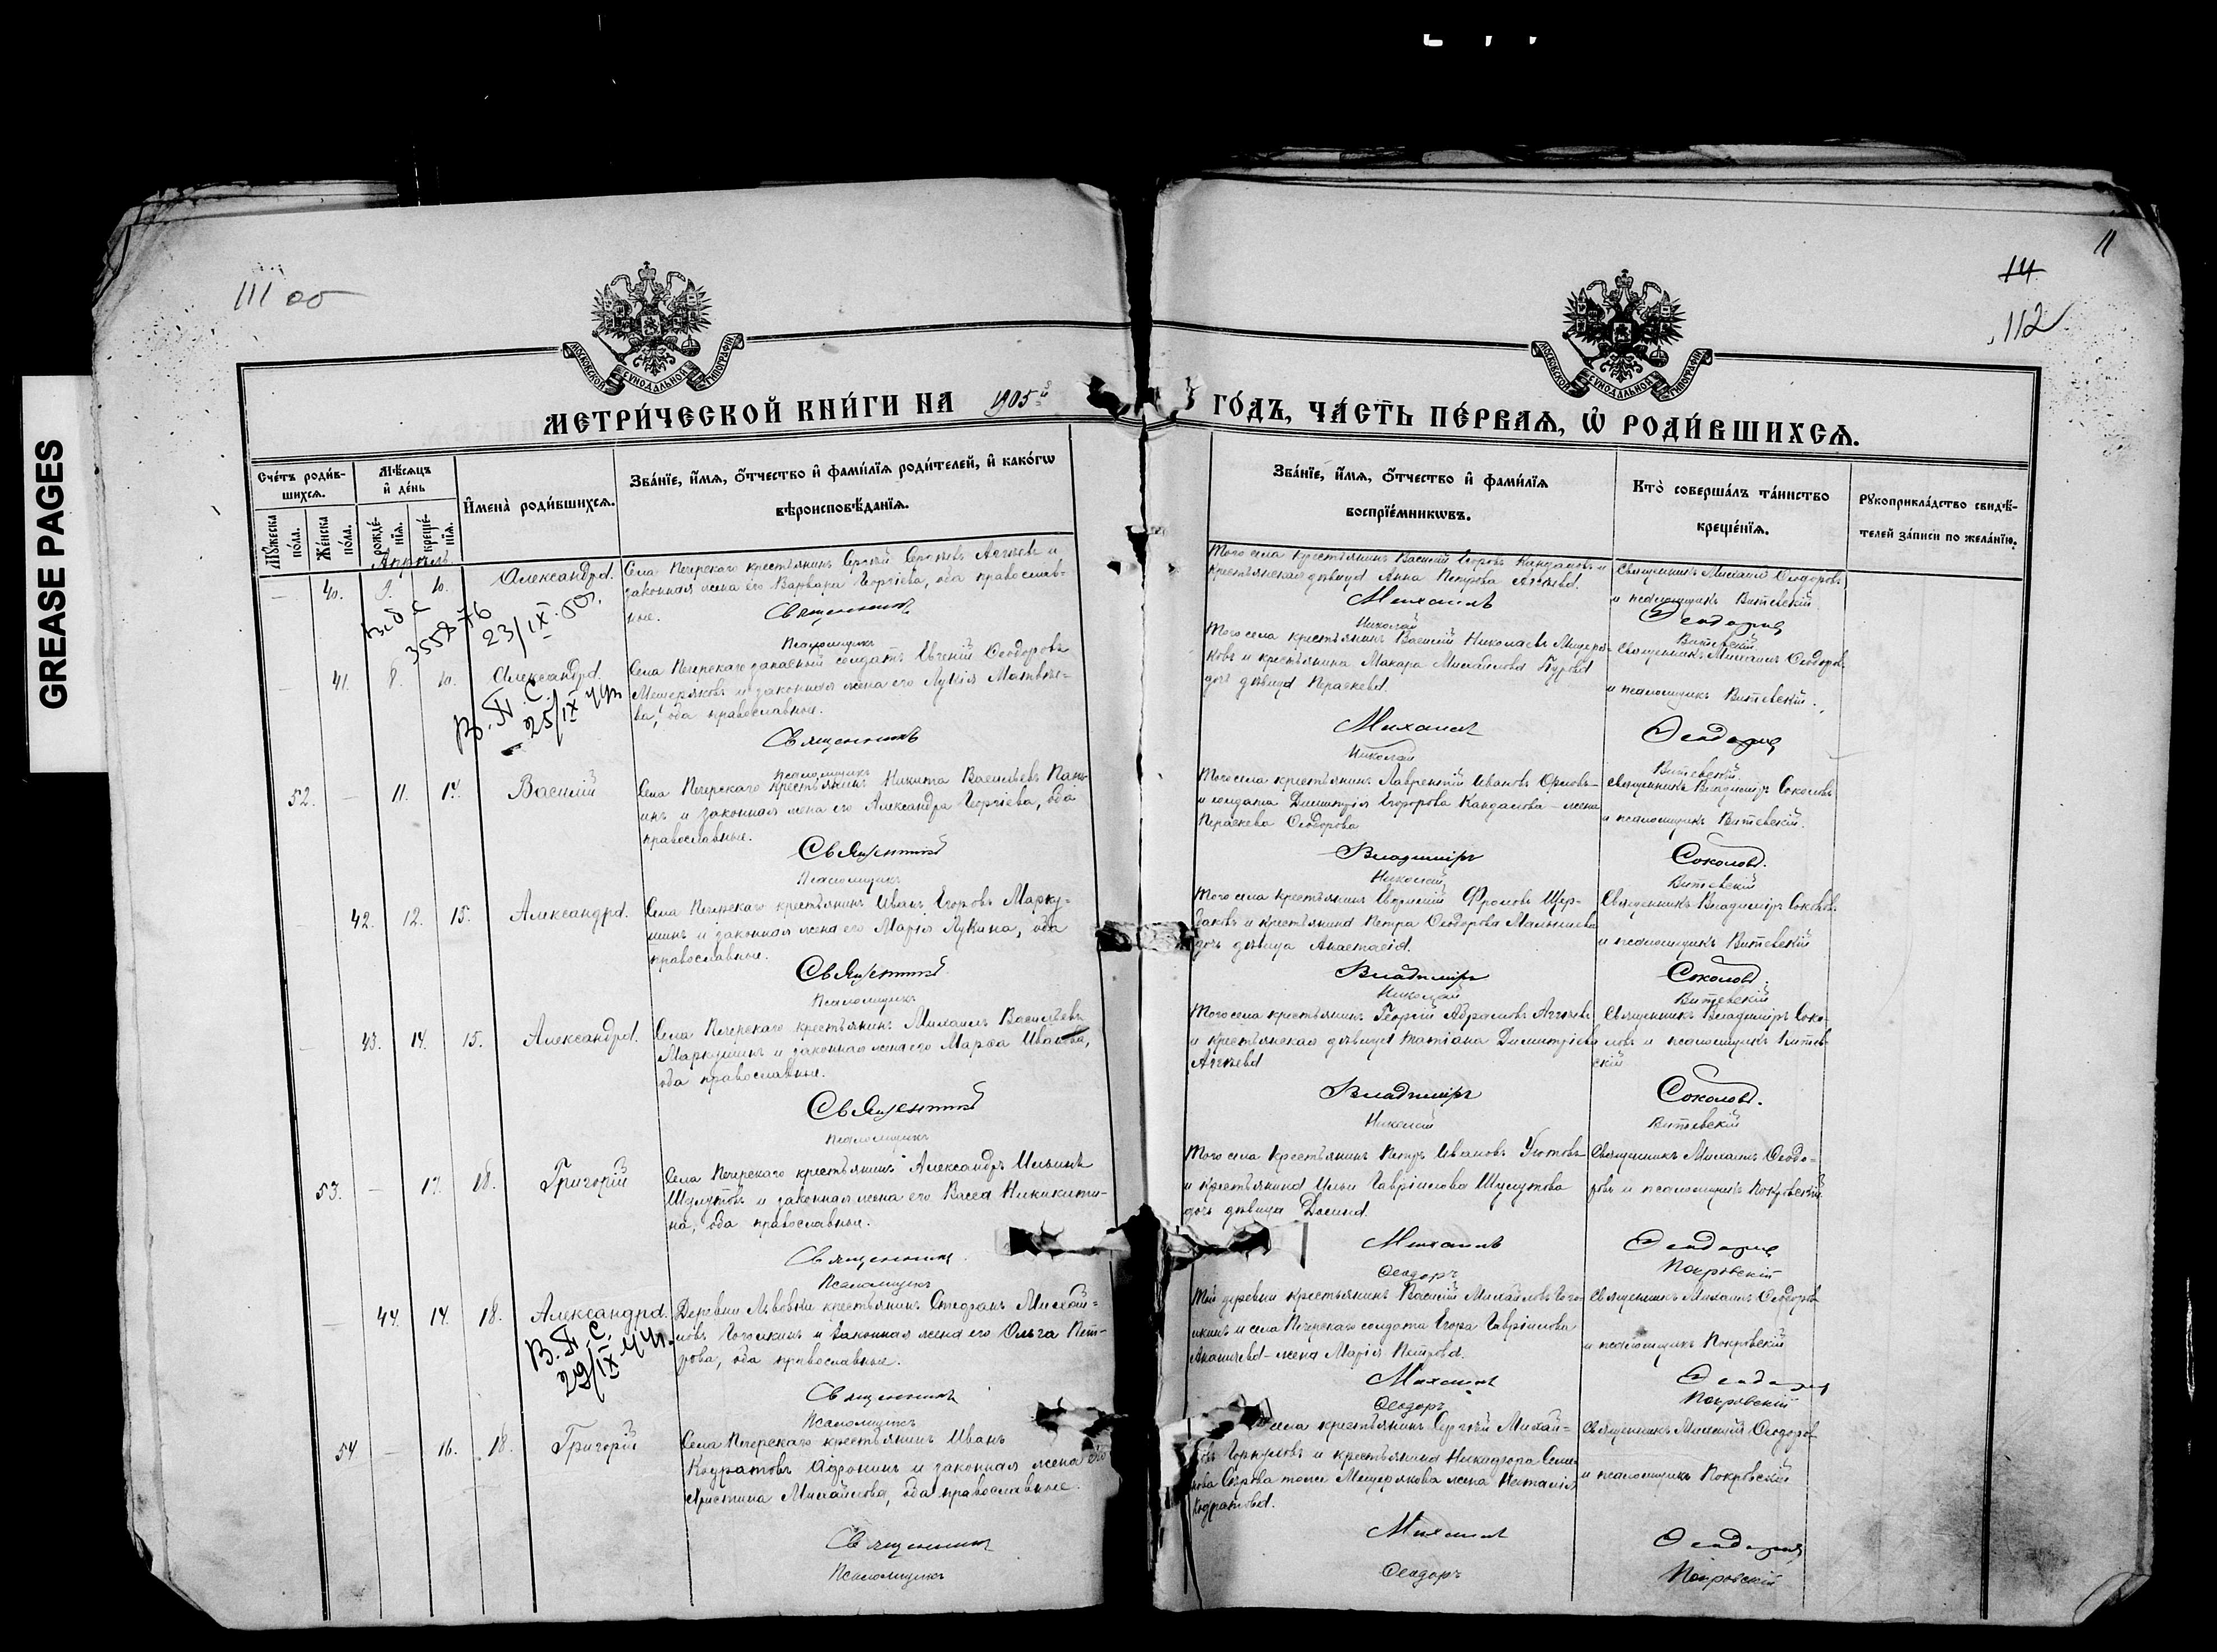 GREASE PAGES
111 об
11
14
112
МОСКОВСКОЙ СѴНОДАЛЬНОЙ ТИПОГРАФІИ
МОСКОВСКОЙ СѴНОДАЛЬНОЙ ТИПОГРАФІИ
МЕТРИ́ЧЕСКОЙ КНИ́ГИ НА 1905й ГО́ДЪ, ЧА́СТЬ ПЕ́РВАѦ, Ѡ҆ РОДИ́ВШИХСѦ.
Сче́тъ роди́в-
шихсѧ.
Мѣ́сѧцъ
и҆ де́нь
И҆мена̀ роди́вшихсѧ.
Зва́нїе, и҆́мѧ, ѻ҆́тчество и҆ фами́лїѧ роди́телей, и҆ како́гѡ
вѣроисповѣ́данїѧ.
Зва́нїе, и҆́мѧ, ѻ҆́тчество и҆ фами́лїѧ
воспрїе́мникѡвъ.
Кто̀ соверша́лъ та́инство
креще́нїѧ.
Рꙋкоприкла́дство свидѣ́-
телей за́писи по жела́нїю.
Мꙋ́жеска
по́ла.
Же́нска
по́ла.
рожде́-
нїѧ.
креще́-
нїѧ.
Апрѣль.
— 40. 9. 10. Александра.
Села Печерскаго крестьянинъ Сергѣй
законная жена его Варвара Георгіева, оба православ-
ные.
Священникъ
Псаломщикъ
Того села крестьянинъ Василій Егоровъ Кандаловъ и
крестьянская дѣвица Анна Петрова
Михаилъ
Николай
Священникъ Михаилъ Ѳеодоровъ
и псаломщикъ Витевскій.
Ѳеодоровъ
Витевскій
355876
23/IX
— 41. 8. 10. Александра.
Села Печерскаго запасный солдатъ Евгеній Ѳеодоровъ
Мещеряковъ и законная жена его Лукія Матвѣе-
ва, оба православные.
Священникъ
Псаломщикъ
Того села крестьянинъ Василій Николаевъ Мещеря-
ковъ и крестьянина Макара Михайлова
дочь дѣвица Параскева.
Михаилъ
Николай
Священникъ Михаилъ Ѳеодоровъ
и псаломщикъ Витевскій.
Ѳеодоровъ
Витевскій.
25/IX 44
52. — 11. 14. Василій
Села Печерскаго крестьянинъ Никита Васильевъ Пань-
инъ и законная жена его Александра Георгіева, оба
православные.
Священникъ
Псаломщикъ
Того села крестьянинъ Лаврентій Ивановъ Орловъ
и солдата Димитрія Егорова Кандалова – жена
Параскева Ѳеодорова
Владиміръ
Николай
Священникъ Владиміръ Соколовъ
и псаломщикъ Витевскій.
Соколовъ.
Витевскій
— 42. 12. 15. Александра.
Села Печерскаго крестьянинъ Иванъ Егоровъ Марку-
шинъ и законная жена его Марія Лукина, оба
православные.
Священникъ
Псаломщикъ
Того села крестьянинъ Фроловъ Щер-
баковъ и крестьянина Петра Ѳеодорова
дочь дѣвица Анастасія.
Владиміръ
Николай
Священникъ Владиміръ Соколовъ
и псаломщикъ Витевскій
Соколовъ.
Витевскій
— 43. 14. 15. Александра.
Села Печерскаго крестьянинъ Михаилъ Васильевъ
Маркушинъ и законная жена его Марѳа Иванова,
оба православные.
Священникъ
Псаломщикъ
Того села крестьянинъ Георгій Абрамовъ
и крестьянская дѣвица Татіана Димитріева
Владиміръ
Николай
Священникъ Владиміръ Соко-
ловъ и псаломщикъ Витев-
скій
Соколовъ.
Витевскій
53. — 17. 18. Григорій
Села Печерскаго крестьянинъ Александръ Ильинъ
Шумутовъ и законная жена его Васса Никикити-
на, оба православные.
Священникъ
Псаломщикъ
Того села крестьянинъ Петръ Ивановъ
и крестьянина Ильи Гавріилова Шумутова
дочь дѣвица
Михаилъ
Ѳеодоръ
Священникъ Михаилъ Ѳеодо-
ровъ и псаломщикъ Покровскій
Ѳеодоровъ
Покровскій
— 44. 14. 18. Александра.
Деревни Львовки крестьянинъ Стефанъ Михай-
ловъ и законная жена его Ольга Пет-
рова, оба православные.
Священникъ
Псаломщикъ
Той деревни крестьянинъ Василій Михайловъ
и села Печерскаго солдата Егора Гавріилова
Ананьева – жена Марія Петрова.
Михаилъ
Ѳеодоръ
Священникъ Михаилъ Ѳеодоровъ
и псаломщикъ Покровскій
Ѳеодоровъ
Покровскій
29/IX 44
54 — 16. 18. Григорій
Села Печерскаго крестьянинъ Иванъ
Кодратовъ Аѳонинъ и законная жена его
Христина Михайлова, оба православные.
Священникъ
Псаломщикъ
села крестьянинъ Сергѣй Михай-
ловъ и крестьянина Никанора Семе-
нова тоже Мещерякова жена Наталія
Кодратова.
Михаилъ
Ѳеодоръ
Священникъ Михаилъ Ѳеодоровъ
и псаломщикъ Покровскій
Ѳеодоровъ
Покровскій